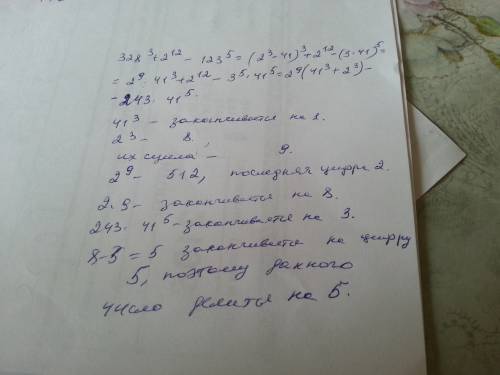 328³+2¹² - 123⁵ = (2³·41)³+2¹²-(3·41)⁵=
= 2⁹·41³+2¹² - 3⁵·41⁵=2⁹(41³+2³)-
- 243·41⁵.
41³ - заканчивается на 1.
2³ - 8.
их сумма - 9.
2⁹ - 512, последняя цифра 2.
2·9 - заканчивается на 8.
243·41⁵ - заканчивается на 3.
8-3 = 5 заканчивается на цифру
5, поэтому данного
число делится на 5.